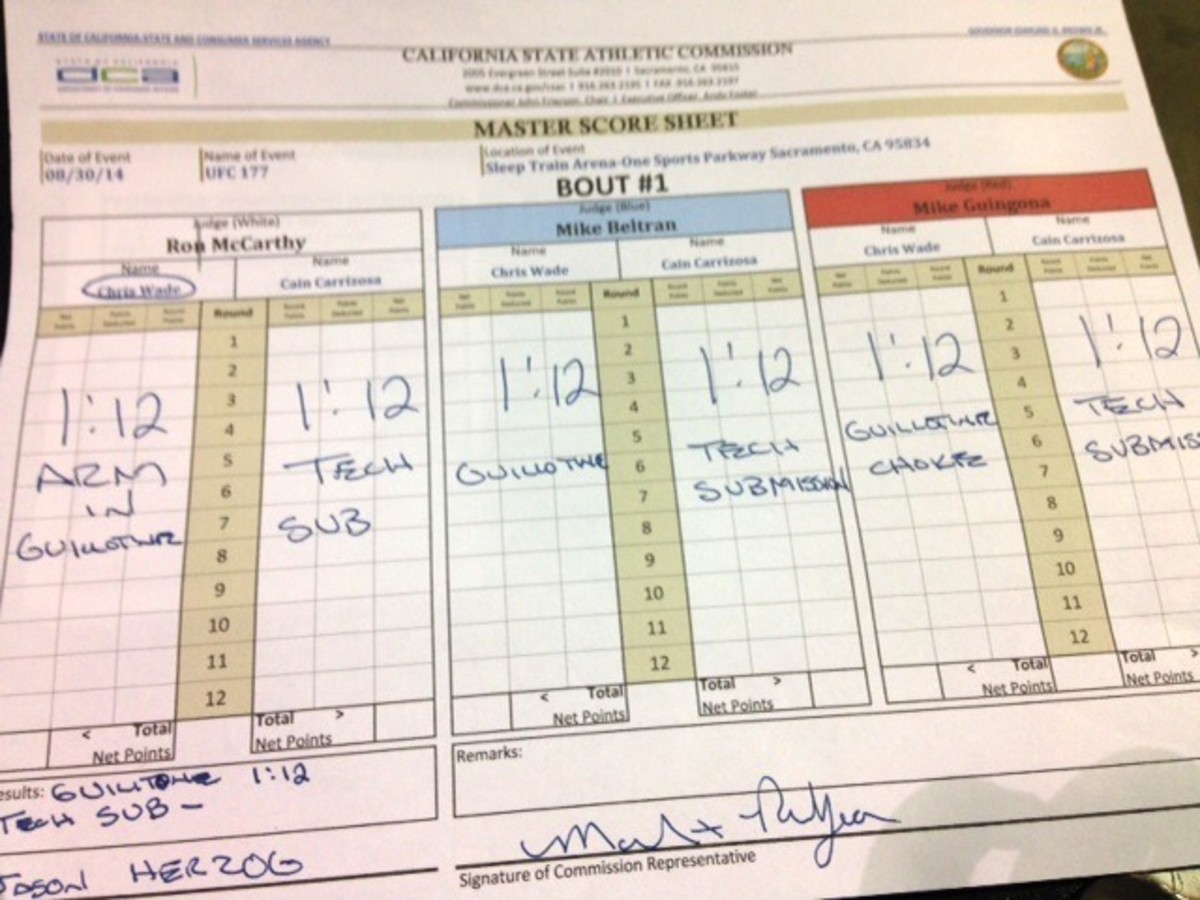 STATE OF CALIFORNIA-STATE AND CONSUMER SERVICES AGENCY
GOVERNOR EDMUND G. BROWN JR.
STATE OF CALIFORNIA
dca
DEPARTMENT OF CONSUMER AFFAIRS
CALIFORNIA STATE ATHLETIC COMMISSION
2005 Evergreen Street Suite #2010 | Sacramento, CA 95815
www.dca.ca.gov/csac | 916.263.2195 | FAX 916.263.2197
Commissioner John Frierson, Chair | Executive Officer, Andy Foster
MASTER SCORE SHEET
Date of Event
08/30/14
Name of Event
UFC 177
Location of Event
Sleep Train Arena-One Sports Parkway Sacramento, CA 95834
BOUT #1
Judge (White)
Ron McCarthy
Name
Chris Wade
Name
Cain Carrizosa
Net Points
Points Deducted
Round Points
Round
Round Points
Points Deducted
Net Points
1
2
3
4
5
6
7
8
9
10
11
12
1:12
ARM
IN
GUILLOTINE
1:12
TECH
SUB
< Total
Net Points
Total >
Net Points
Judge (Blue)
Mike Beltran
Name
Chris Wade
Name
Cain Carrizosa
Net Points
Points Deducted
Round Points
Round
Round Points
Points Deducted
Net Points
1
2
3
4
5
6
7
8
9
10
11
12
1:12
GUILLOTINE
1:12
TECH
SUBMISSION
< Total
Net Points
Total >
Net Points
Judge (Red)
Mike Guingona
Name
Chris Wade
Name
Cain Carrizosa
Net Points
Points Deducted
Round Points
Round
Round Points
Points Deducted
Net Points
1
2
3
4
5
6
7
8
9
10
11
12
1:12
GUILLOTINE
CHOKE
1:12
TECH
SUBMISS
< Total
Net Points
Total >
Net Points
esults: GUILLTONE 1:12
TECH SUB -
JASON HERZOG
Remarks:
Signature of Commission Representative